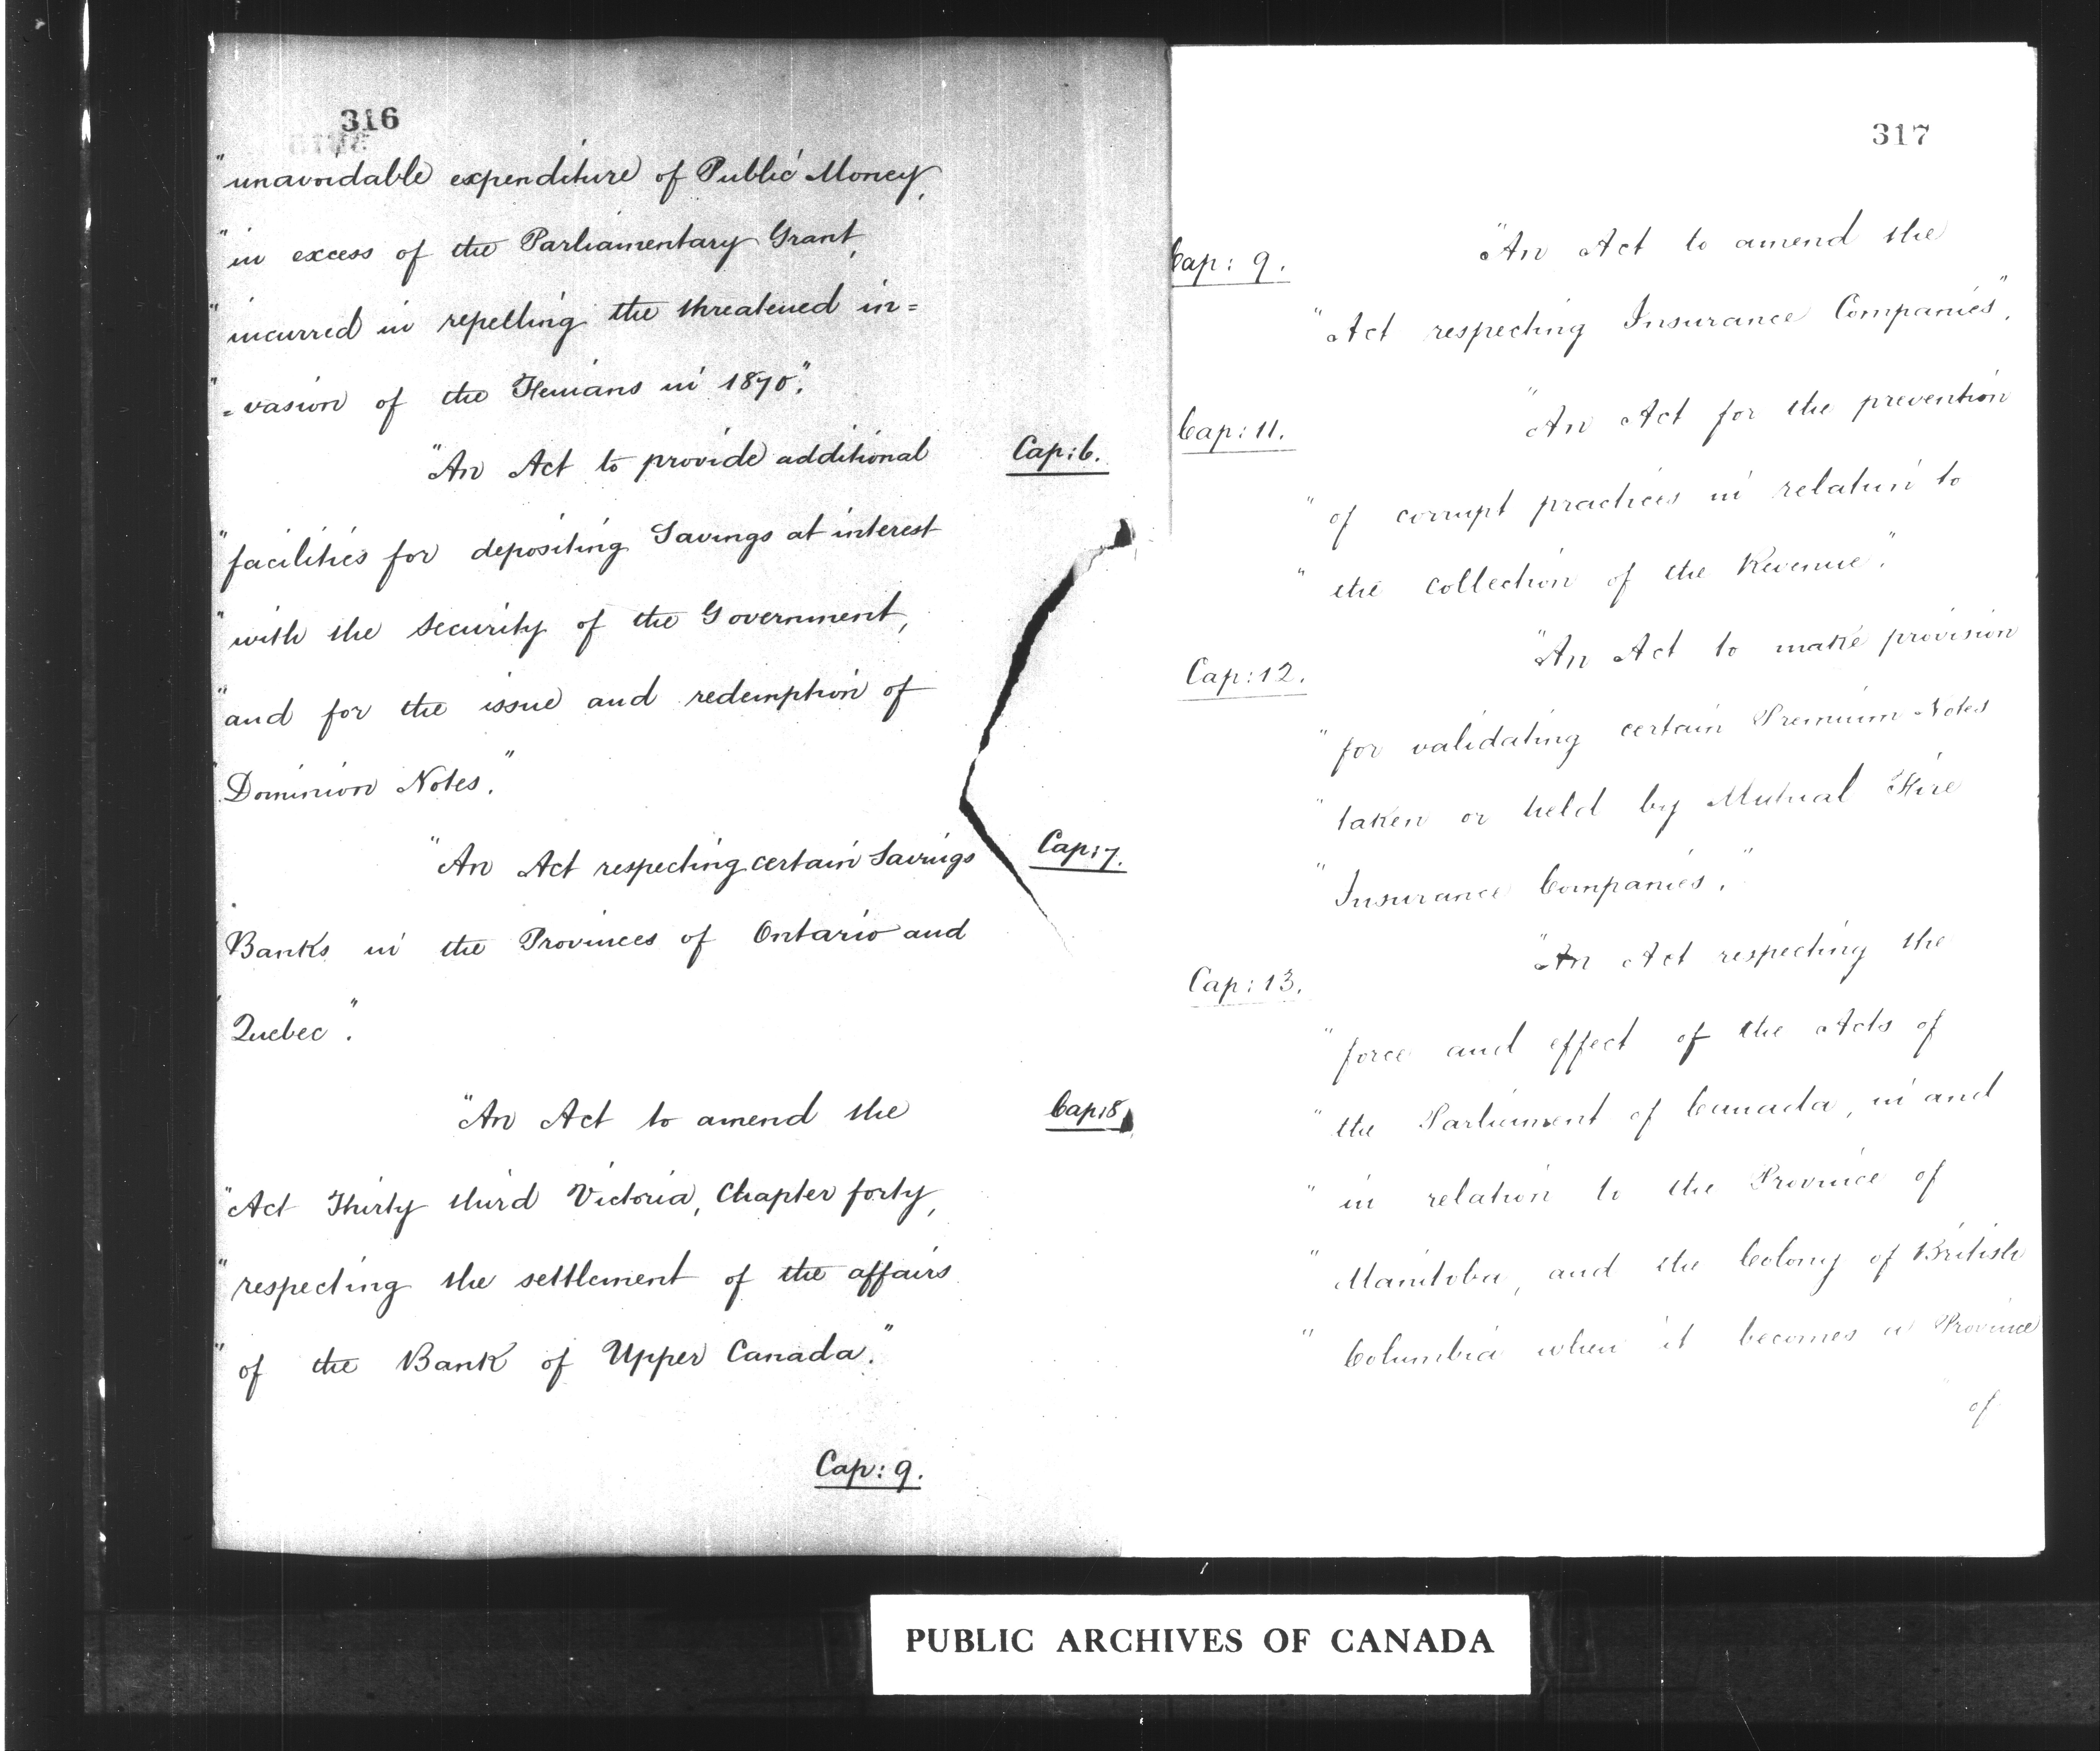 316
"unavoidable expenditure of Public Money,
"in excess of the Parliamentary Grant,
"incurred in repelling the threatened in=
"=vasion of the Fenians in 1870."
"An Act to provide additional Cap: 6.
"facilities for depositing Savings at interest
"with the Security of the Government,
"and for the issue and redemption of
"Dominion Notes."
"An Act respecting certain Savings Cap: 7.
"Banks in the Provinces of Ontario and
"Quebec".
"An Act to amend the Cap: 8
"Act Thirty third Victoria, Chapter forty,
"respecting the settlement of the affairs
"of the Bank of Upper Canada."
Cap: 9.
317
Cap: 9. "An Act to amend the
"Act respecting Insurance Companies".
Cap: 11. "An Act for the prevention
"of corrupt practices in relation to
"the collection of the Revenue."
Cap: 12. "An Act to make provision
"for validating certain Premium Notes
"taken or held by Mutual Fire
"Insurance Companies."
Cap: 13. "An Act respecting the
"force and effect of the Acts of
"the Parliament of Canada, in and
"in relation to the Province of
"Manitoba, and the Colony of British
"Columbia when it becomes a Province
"of
PUBLIC ARCHIVES OF CANADA